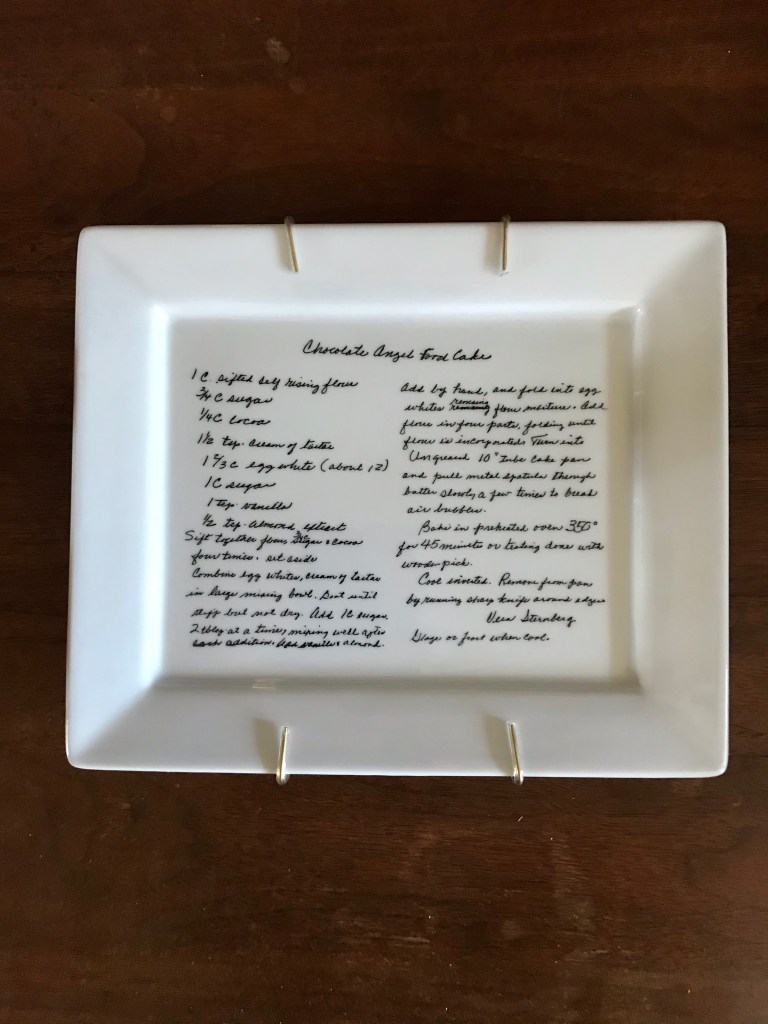 Chocolate Angel Food Cake
1 C. sifted self rising flour
3/4 C sugar
1/4 C cocoa
1 1/2 tsp. cream of tartar
1 2/3 C egg white (about 12)
1 C sugar
1 tsp. vanilla
1/2 tsp. almond extract
Sift together flour, 3/4 sugar & cocoa
four times. set aside
Combine egg whites, cream of tartar
in large mixing bowl. Beat until
stiff but not dry. Add 1C sugar,
2 tblsp at a time, mixing well after
each addition. Add vanilla & almond.
Add by hand, and fold into egg
whites remaing flour mixture. Add
flour in four parts, folding until
flour is incorporated. Turn into
Ungreased 10" tube cake pan
and pull metal spatula through
batter slowly a few times to break
air bubbles.
Bake in preheated oven 350°
for 45 minutes or testing done with
wooden pick.
Cool inverted. Remove from pan
by running sharp knife around edges
Vera Sternberg
Glaze or frost when cool.